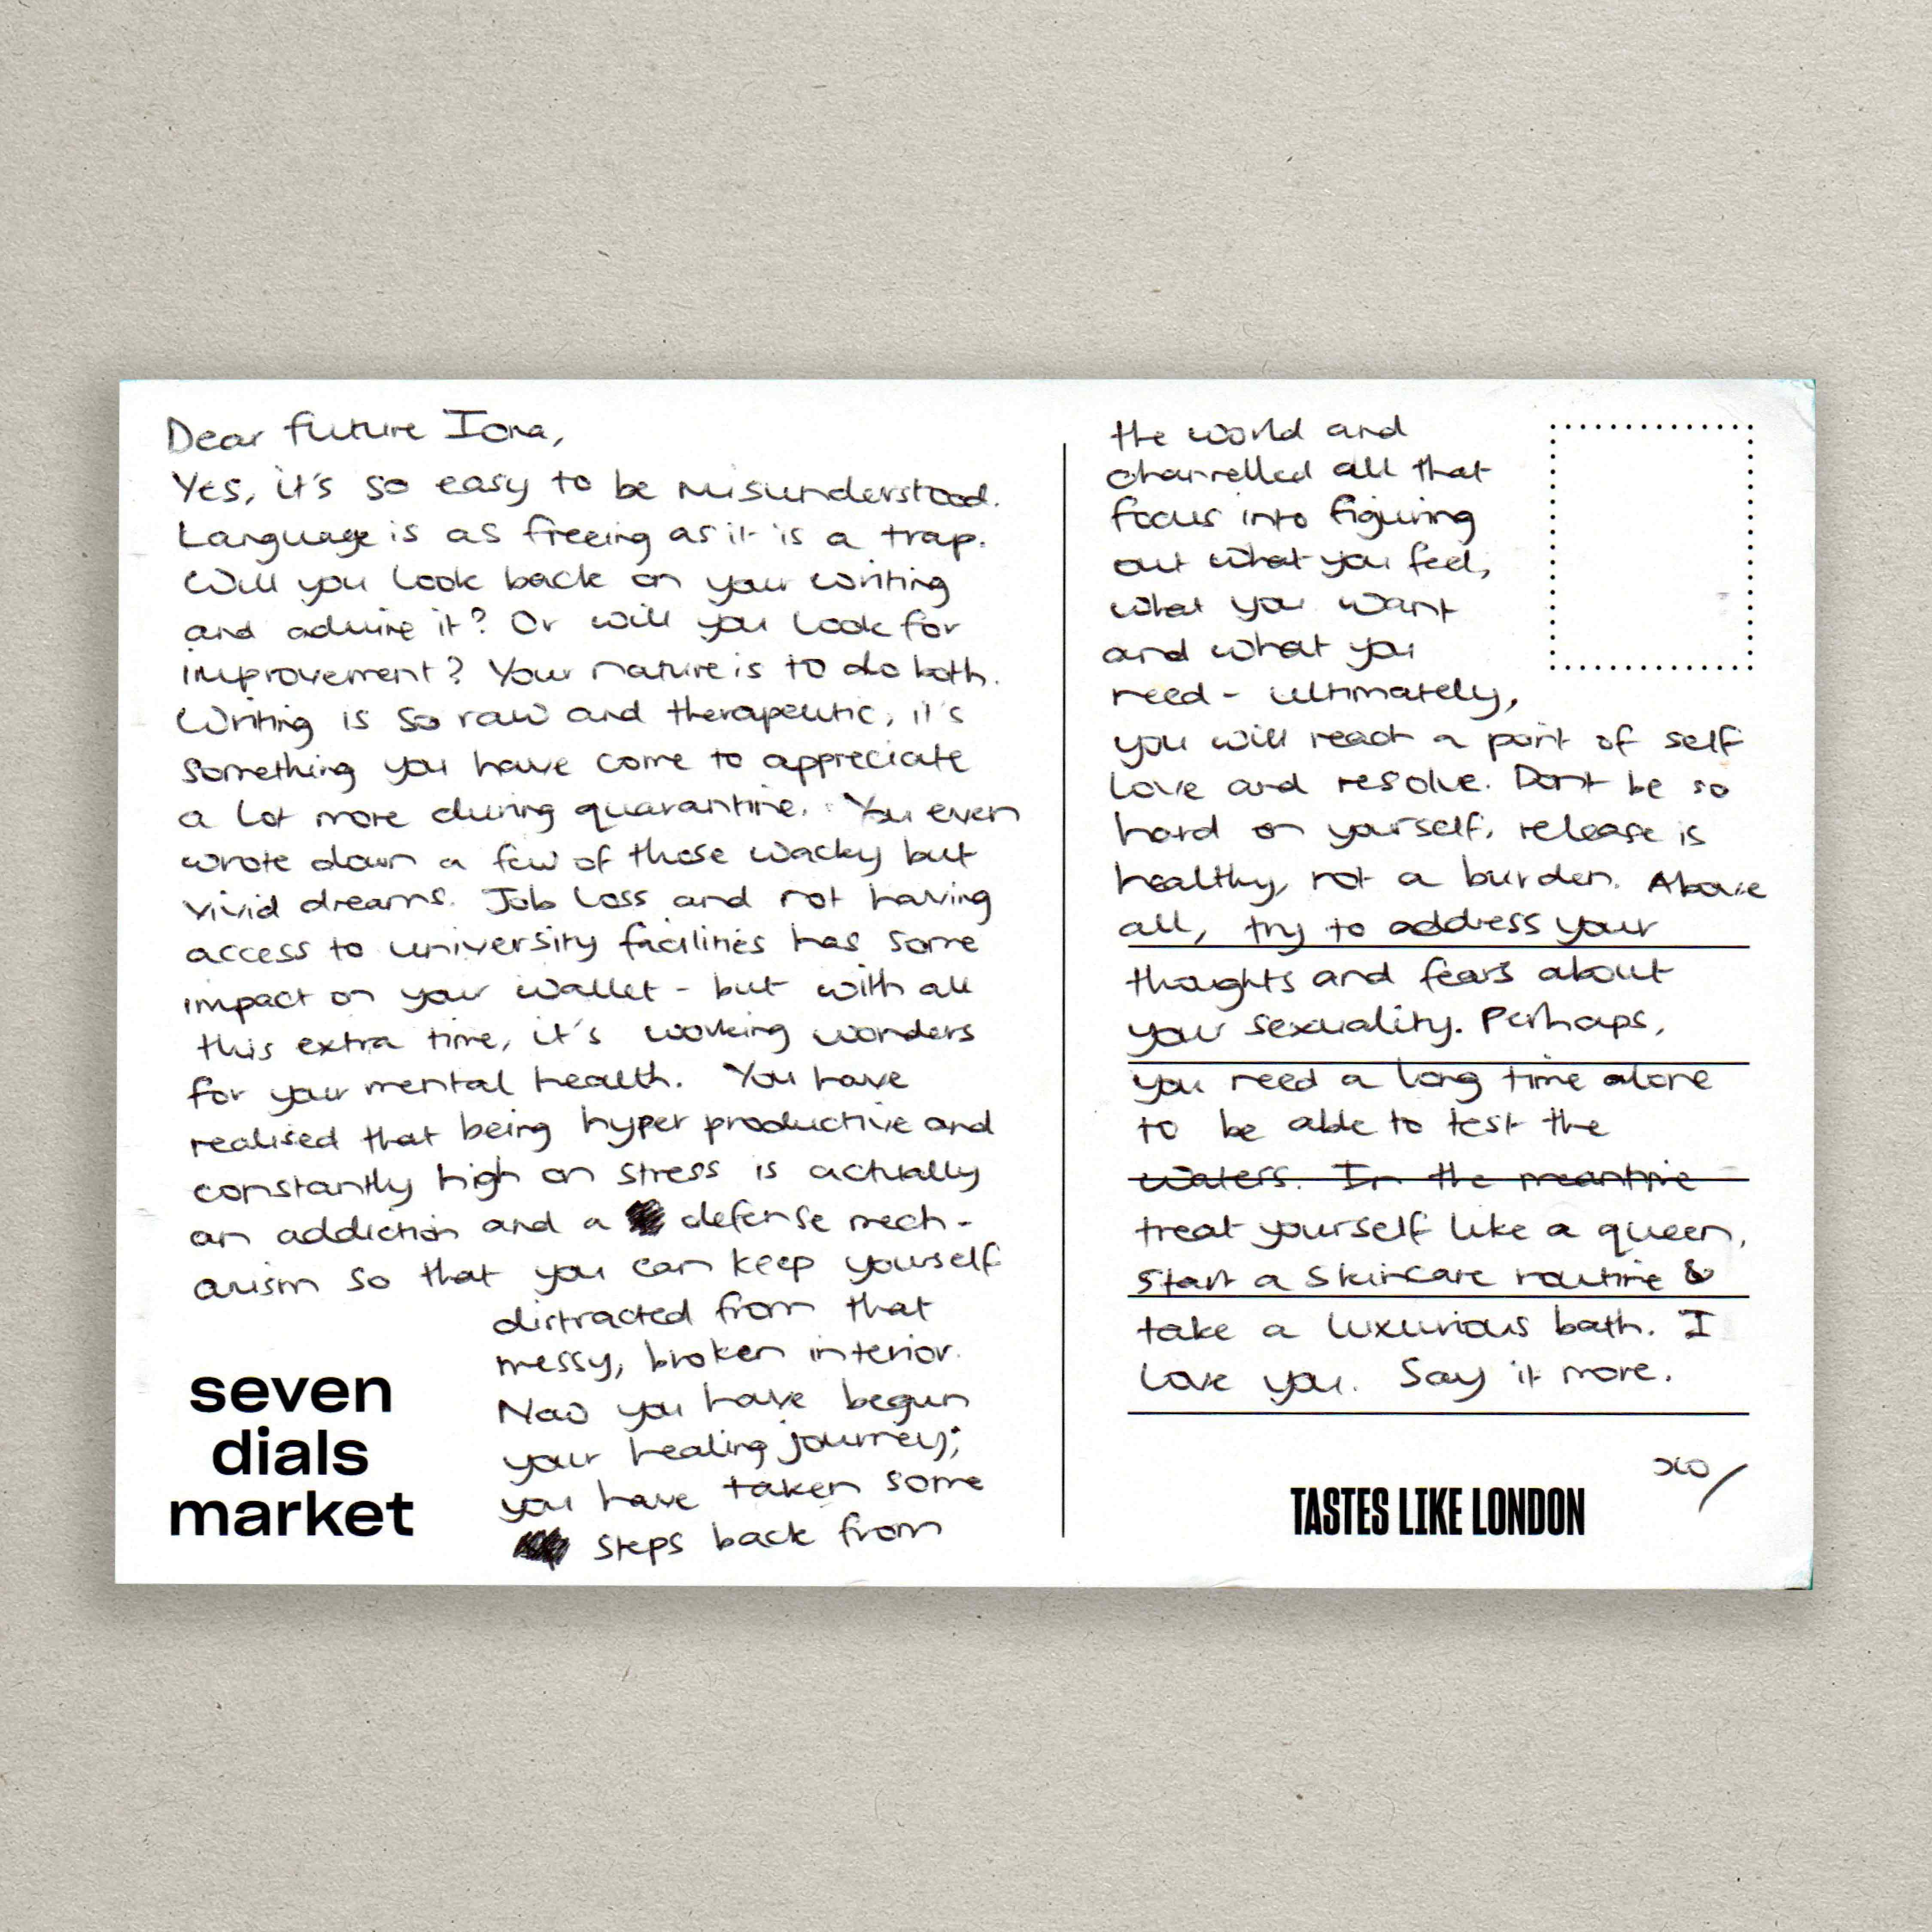 Dear future Iona,
Yes, it's so easy to be misunderstood.
Language is as freeing as it is a trap.
Will you look back on your writing
and admire it? Or will you look for
improvement? Your nature is to do both.
Writing is so raw and therapeutic, it's
something you have come to appreciate
a lot more during quarantine. You even
wrote down a few of those wacky but
vivid dreams. Job loss and not having
access to university facilities has some
impact on your wallet - but with all
this extra time, it's working wonders
for your mental health. You have
realised that being hyper productive and
constantly high on stress is actually
an addiction and a defense mech-
anism so that you can keep yourself
distracted from that
messy, broken interior.
Now you have begun
your healing journey;
you have taken some
steps back from
seven
dials
market
the world and
channelled all that
focus into figuring
out what you feel,
what you want
and what you
need - ultimately,
you will reach a point of self
love and resolve. Dont be so
hard on yourself, release is
healthy, not a burden. Above
all, try to address your
thoughts and fears about
your sexuality. Perhaps,
you need a long time alone
to be able to test the
waters. In the meantime
treat yourself like a queen,
start a skincare routine &
take a luxurious bath. I
love you. Say it more.
xo
TASTES LIKE LONDON